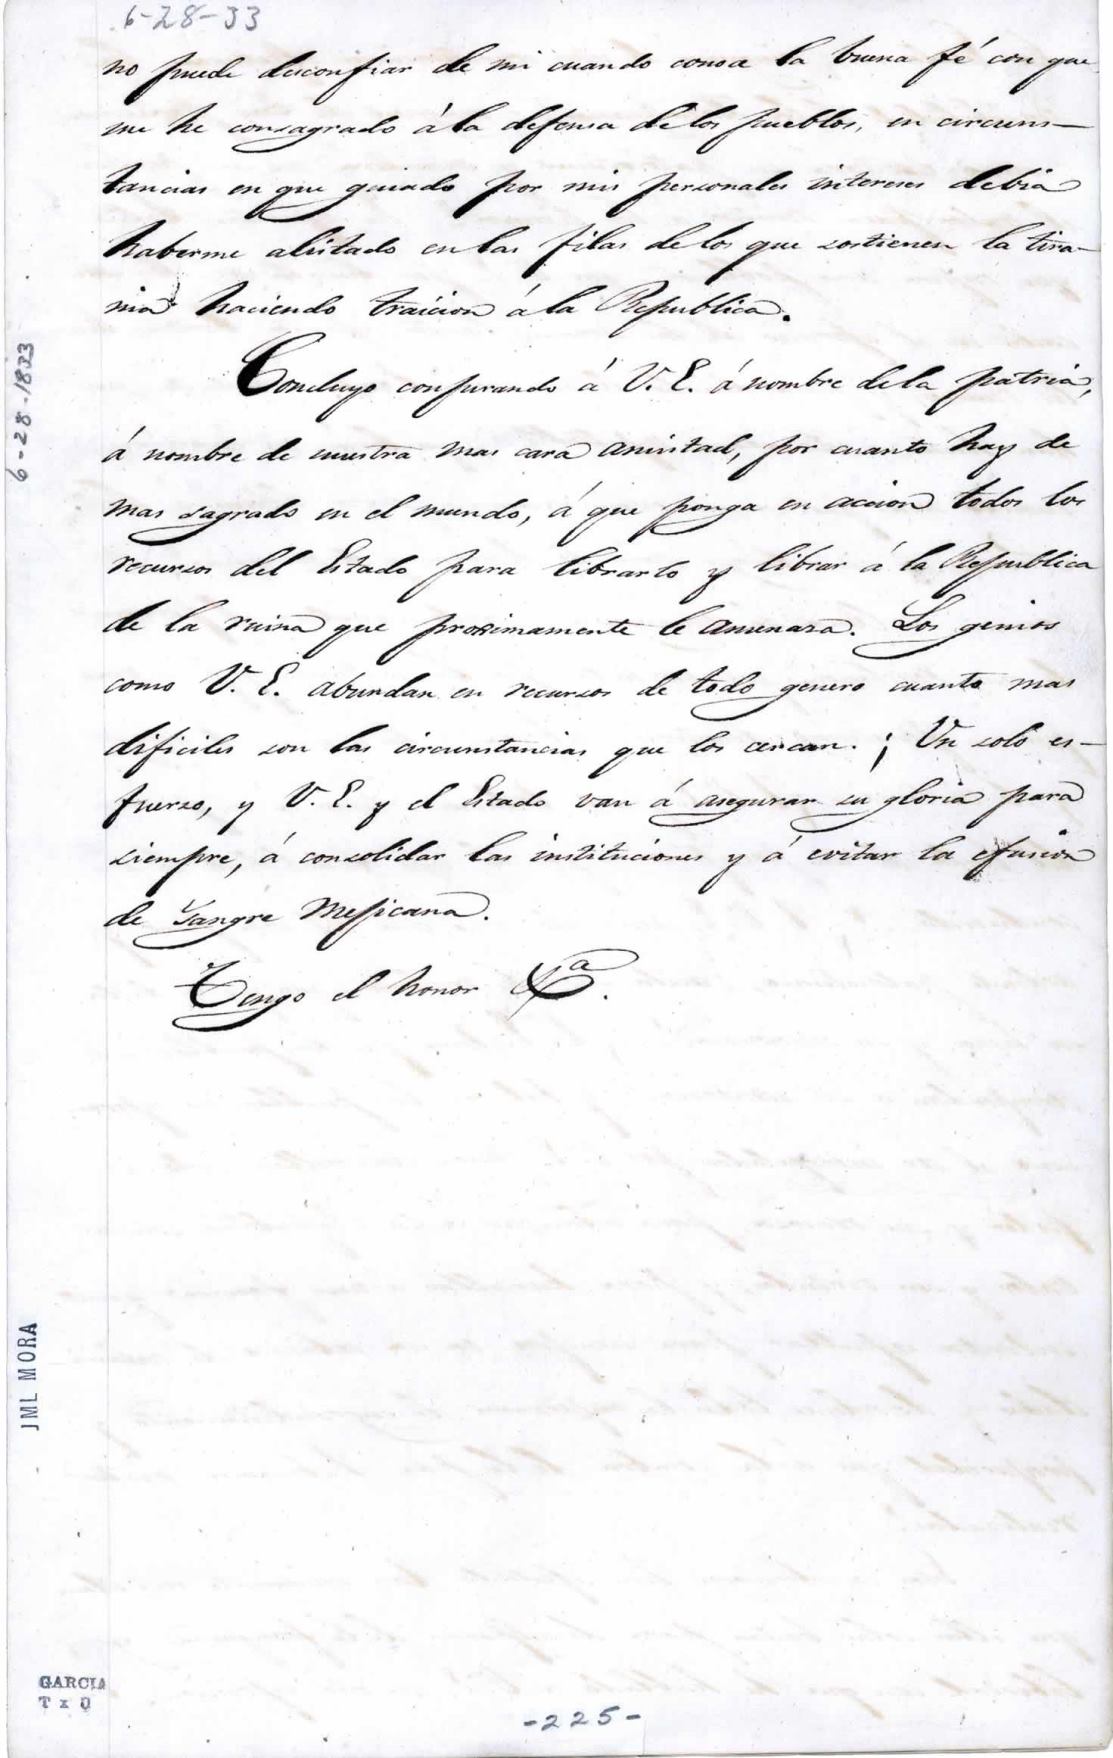 6-28-33
no puede desconfiar de mi cuando conosca la buena fé con que
me he consagrado á la defensa de los pueblos, en circuns-
tancias en que guiado por mis personales intereses debia
haberme alistado en las filas de los que sostienen la tira-
nia haciendo traicion á la Republica.
Concluyo conjurando á V. E. á nombre de la patria,
á nombre de nuestra mas cara amistad, por cuanto hay de
mas sagrado en el mundo, á que ponga en accion todos los
recursos del Estado para librarlo y librar á la Republica
de la ruina que proximamente le amenaza. Los genios
como V. E. abundan en recursos de todo genero cuanto mas
dificiles son las circunstancias que los cercan. ¡Un solo es-
fuerzo, y V. E. y el Estado van á asegurar su gloria para
siempre, á consolidar las instituciones y á evitar la efusion
de Sangre Mejicana.
Tengo el honor &a.
6-28-1833
JML MORA
GARCIA
-225-